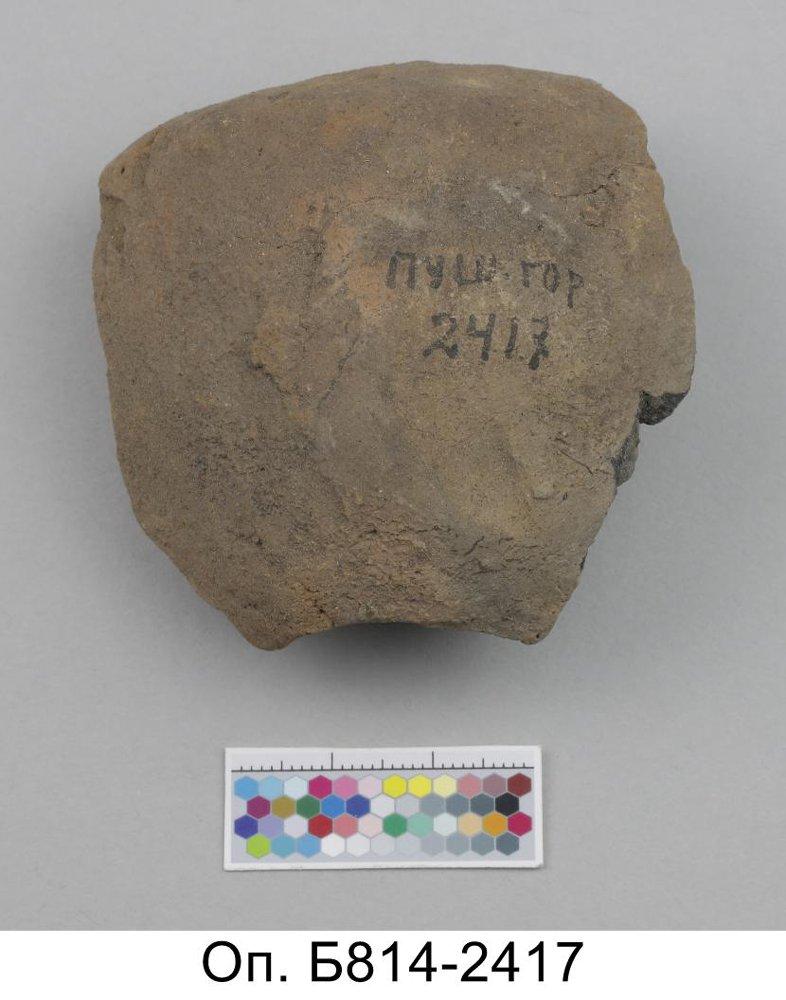 ПУШ-ГОР
2417
Оп. Б814-2417